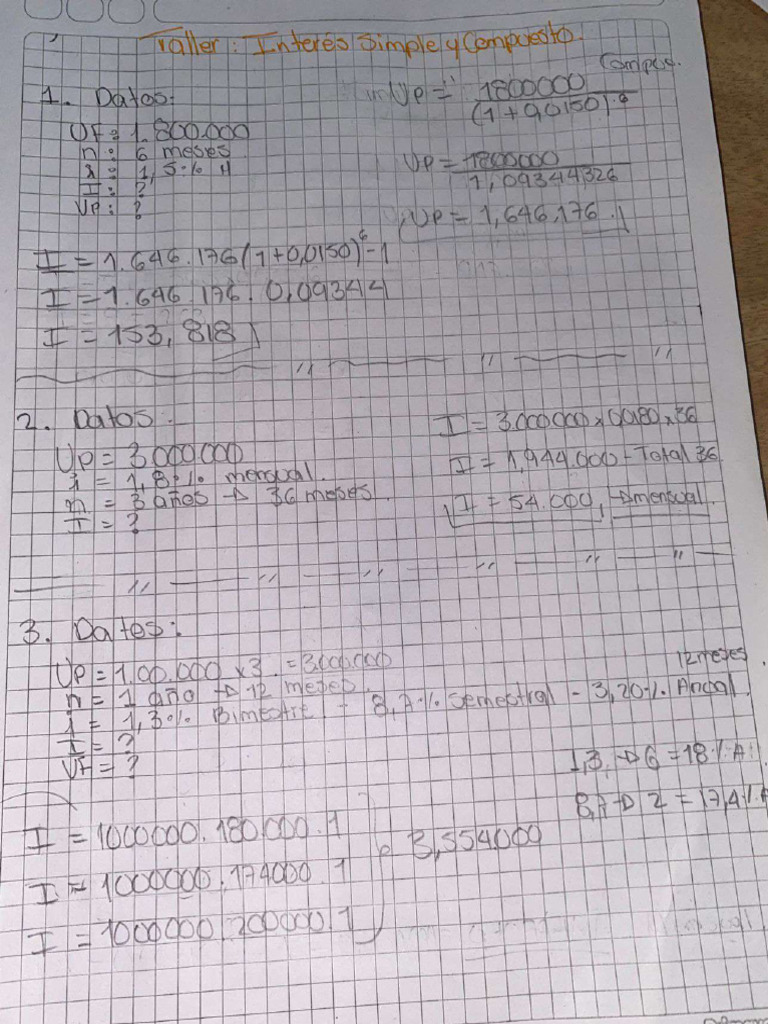 Taller: Interés Simple y Compuesto.
Compus.
1. Datos:
VF = 1.800.000
n: 6 meses
i = 1,5% M
I: ?
VP: ?
VP = 1800000
(1+0,0150)^6
VP = 1800000
1,09344326
VP = 1,646,176
I = 1.646.176(1+0,0150)^6-1
I = 1.646.176.0,09344
I = 153,818
2. Datos:
VP = 3.000.000
i = 1,8% mensual.
n = 3 años → 36 meses.
I = ?
I = 3.000.000 x 0,0180 x 36
I = 1,944.000 - Total 36
I = 54.000, → mensual.
3. Datos:
VP = 1.00.000 x 3 = 3.000.000
12 meses.
n = 1 año → 12 meses.
i = 1,3% Bimestre - 8,7% semestral - 3,20% Anual.
I = ?
VF = ?
1,3 → 6 = 18% A
8,7 → 2 = 17,4% A
I = 1000000.180000.1
I = 1000000.174000.1
I = 1000000.200000.1
3,554000